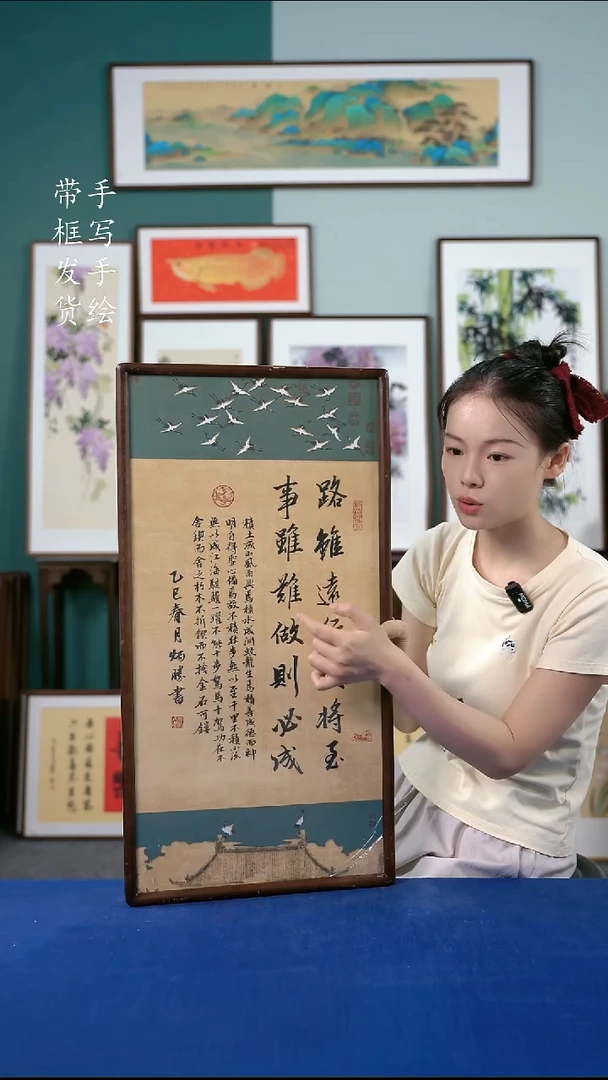 手写手绘
带框发货
路雖遠將至
事雖難做則必成
積土成山風雨興焉積水成淵蛟龍生焉積善成德而神
明自得聖心備焉故不積跬步無以至千里不積小流
無以成江海騏驥一躍不能十步駑馬十駕功在不
舍鍥而舍之朽木不折鍥而不捨金石可鏤
乙巳春月炳勝書